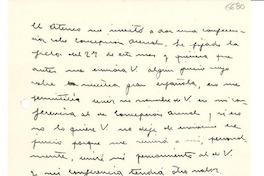 6680
El Ateneo me invitó a dar una conferen-
cia sobre Concepcion Arenal. Se fijado la
fecha del 27 de este mes y quiera que
antes me enviara V. algun juicio suyo
sobre nuestra gran española, en me
permitiría unir su nombre de V. en mi con-
ferencia al de Concepcion Arenal, y si
no lo quiere V. no deje de enviarme su
juicio porque me unirá a mí, personal-
mente, uniré mi pensamiento al de V.
y mi conferencia tendrá más valor.